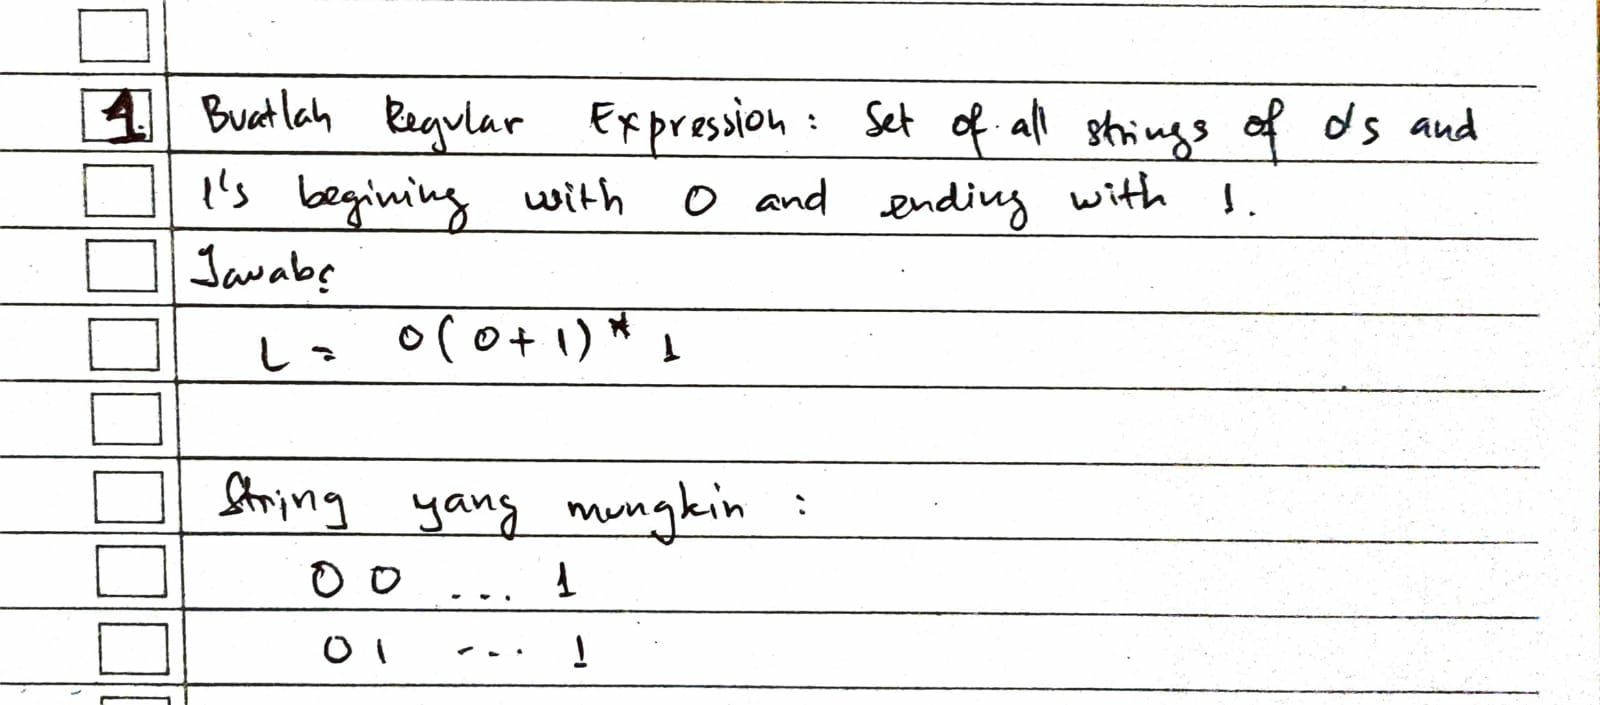 1. Buatlah Regular Expression: Set of all strings of 0's and
1's begining with 0 and ending with 1.
Jawab:
L = 0(0+1)* 1
String yang mungkin :
0 0 ... 1
0 1 ... 1